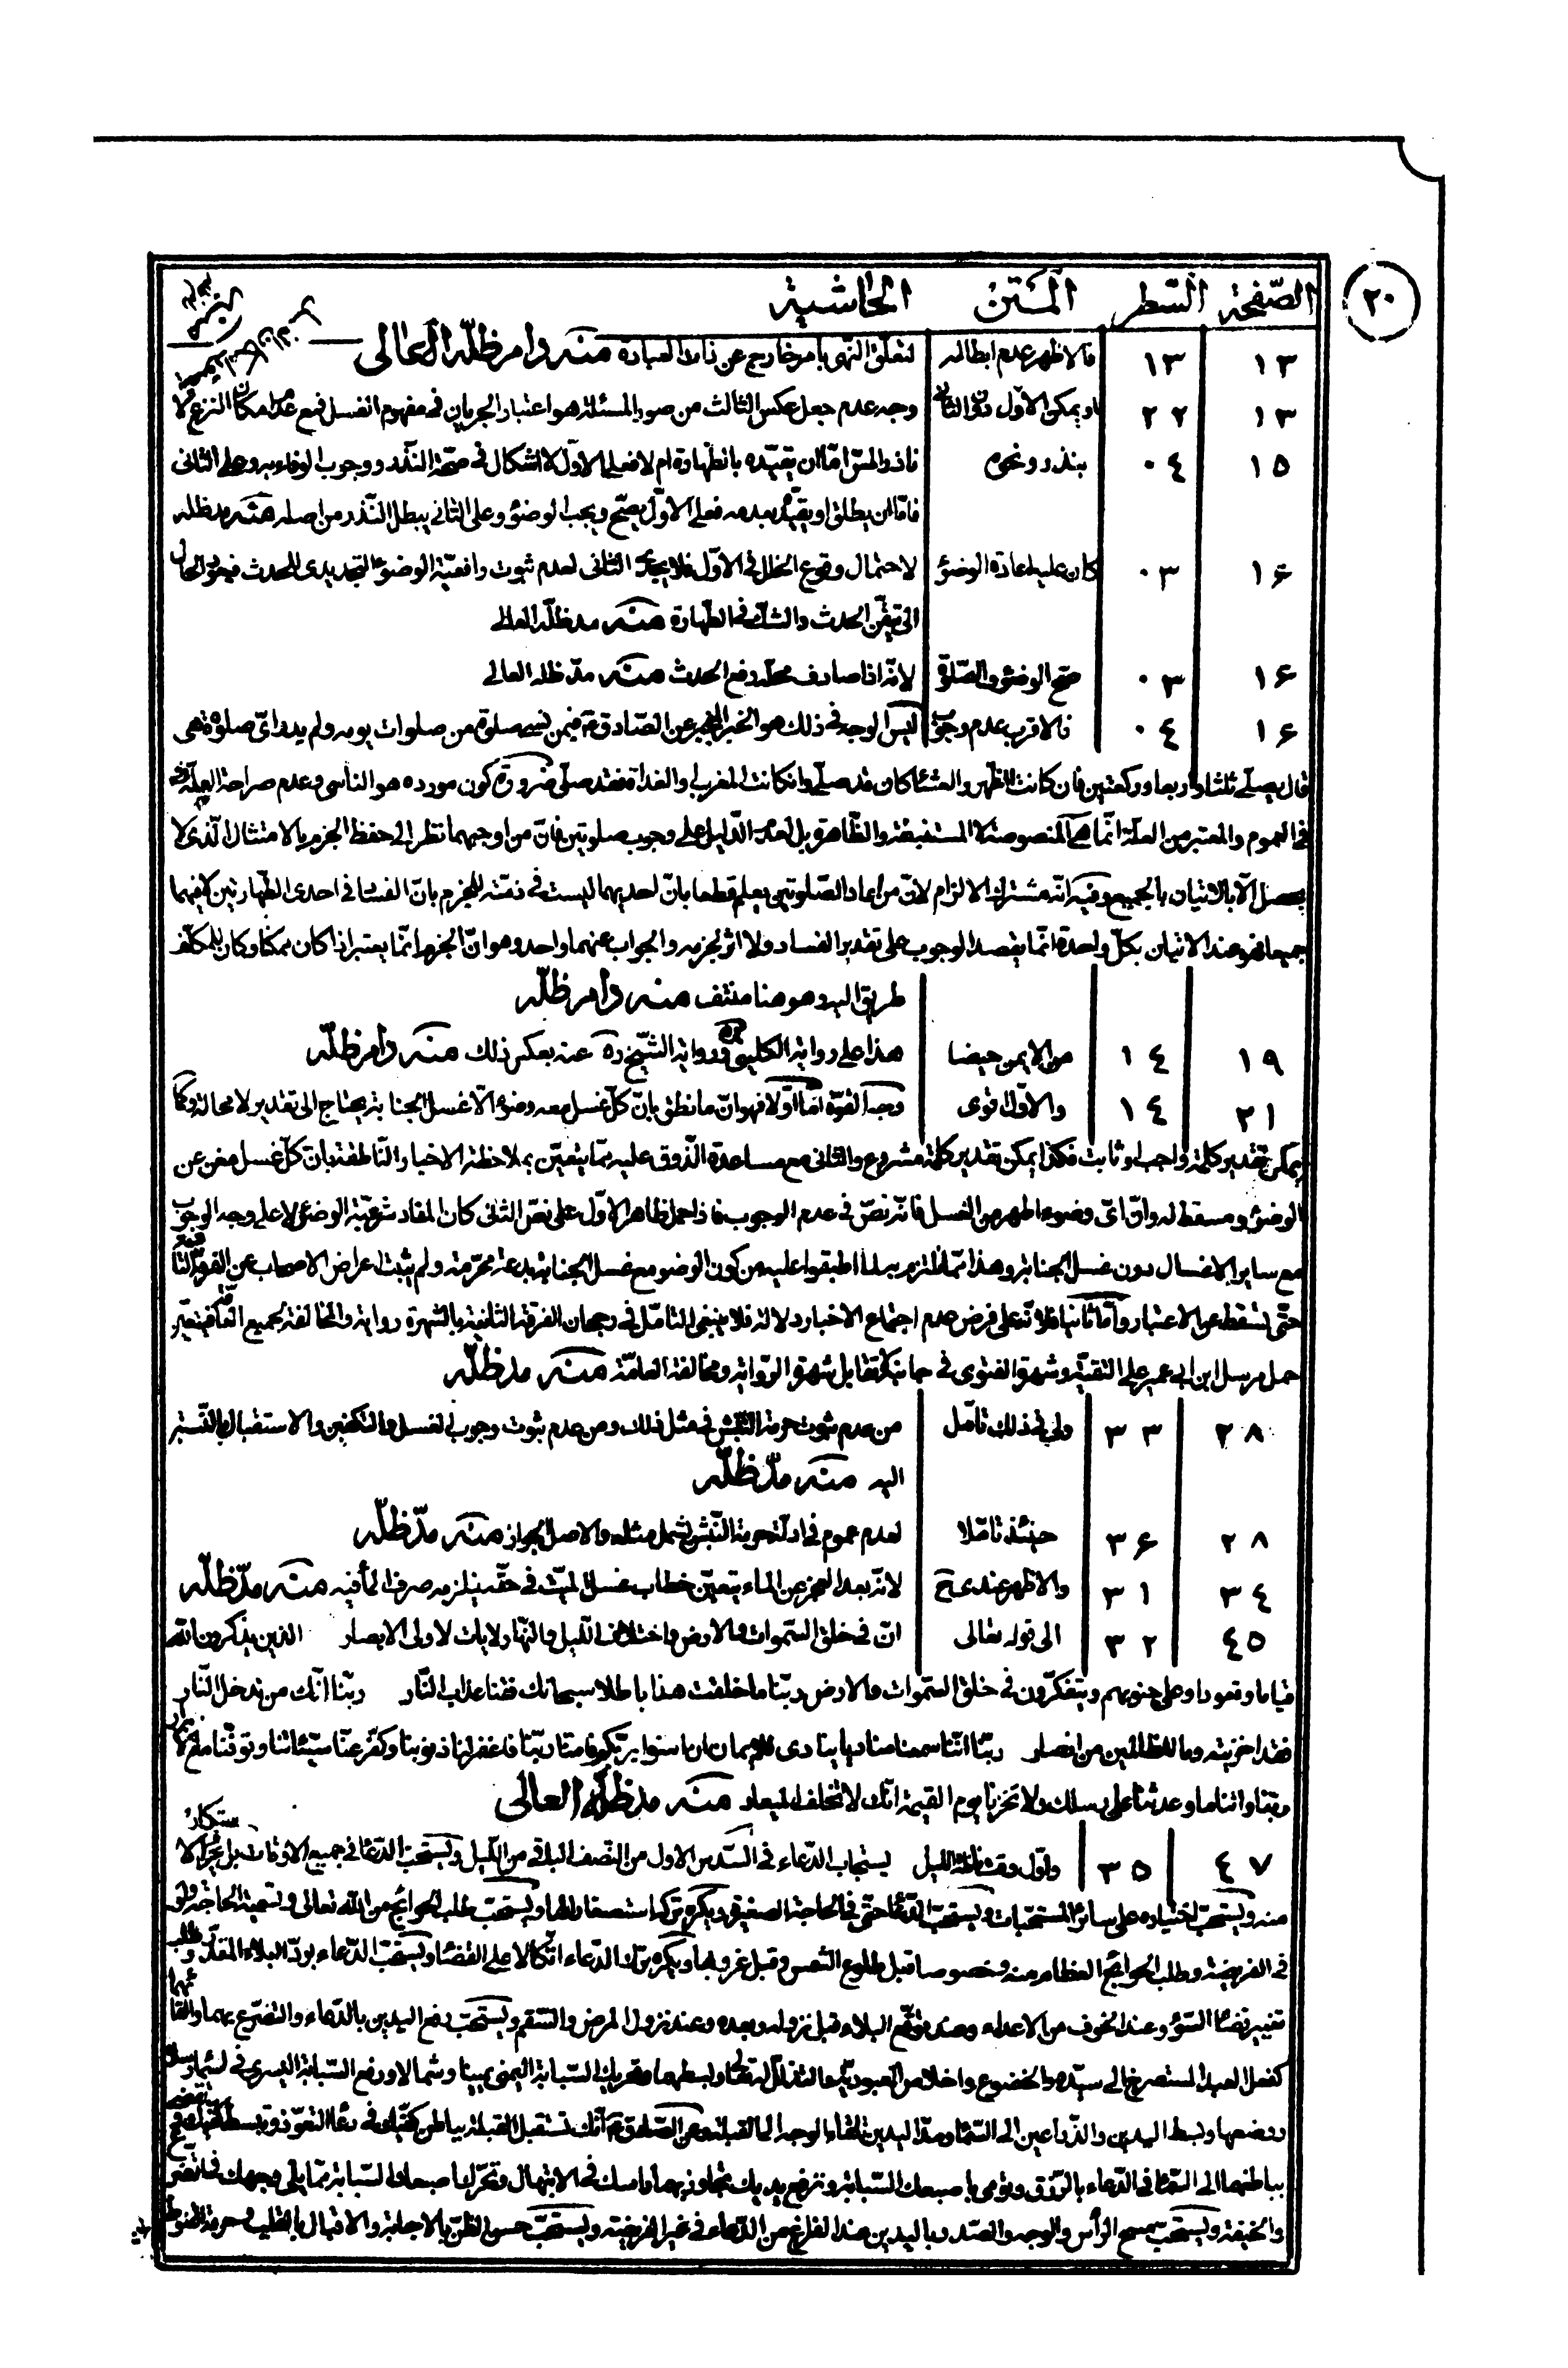 ٢٠
الصّفحة السّطر المتن الحاشية
١٣ ١٣ فالاظهر عدم ابطاله لتعلّق النّهى بامر خارج عن ذات العبادة منه دام ظلّه العالى
١٣ ٢٢ او يمكن الاوّل دون الثانى وجه عدم جعل عكس الثالث من صور المسئلة هو اعتبار الجريان فى مفهوم الغسل فمع عدم امكان النزع
١٥ ٠٤ بنذر ونحوه ناذر المسّ امّا ان يقيّده بالطّهارة ام لا فعلى الاوّل لا اشكال فى صحّة النّذر ووجوب الوفاء به وعلى الثانى
فامّا ان يطلق او يقيّد بعدمه فعلى الاوّل يصحّ ويجب الوضوء وعلى الثانى يبطل النّذر من اصله منه مدّ ظلّه
١۶ ٠٣ كان عليه اعادة الوضوء لاحتمال وقوع الخلل فى الاوّل فلا يجدى الثانى لعدم ثبوت رافعيّة الوضوء التجديدى للحدث فيعود الحال
الى تيقّن الحدث والشكّ فى الطّهارة منه مدّ ظلّه العالى
١۶ ٠٣ صحّ الوضوء والصّلوة لانّه اذا صادف محلّه رفع الحدث منه مدّ ظله العالى
١۶ ٠٤ فالاقرب عدم وجوب ليس الوجه فى ذلك هو الخبر عن الصّادق ع فيمن نسى صلوة من صلوات يومه ولم يدر اىّ صلوة هى
قال يصلّى ثلثا واربعا وركعتين فان كانت الظّهر والعشاء كان قد صلّى وان كانت المغرب او الغداة فقد صلّى ضرورة كون مورده هو الناسى وعدم صراحة العلّة
فى العموم والمعتبر من العلّة انّما هى المنصوصة لا المستنبطة والظّاهرة بل لعدم الدّليل على وجوب صلوتين فانّ من اوجبهما نظر الى حفظ الجزم بالامتثال الّذى لا
يحصل الّا بالاتيان بالجميع وفيه انّه مشترك الالزام لانّ من اعاد الصّلوتين يعلم قطعا بانّ احديهما ليست فى ذمّته للجزم بانّ الفساد فى احدى الطّهارتين لا فيهما
جميعا فهو عند الاتيان بكلّ واحدة انّما يقصد الوجوب على تقدير الفساد ولا اثر لجزمه والجواب عنهما واحد وهو انّ الجزم انّما يعتبر اذا كان ممكنا وكان للمكلّف
طريق اليه وهو هنا منتف منه دام ظلّه
١٩ ١٤ من الايمن حيضا هذا على رواية الكلينى ره ورواية الشّيخ ره عنه بعكس ذلك منه دام ظلّه
٢١ ١٤ والاوّل اقوى وجه القوّة امّا اوّلا فهو انّ ما نطق بانّ كلّ غسل معه وضوء الّا غسل الجنابة يحتاج الى تقدير لا محالة وكما
يمكن تقدير كلمة واجب او ثابت فكذا يمكن تقدير كلمة مشروع والثانى مع مساعدة الذّوق عليه ممّا يتعيّن بملاحظة الاخبار النّاطقة بانّ كلّ غسل مغن عن
الوضوء ومسقط له وانّ اىّ وضوء اطهر من الغسل فانّه نصّ فى عدم الوجوب فاذا حمل ظاهر الاوّل على نصّ الثانى كان المفاد شرعيّة الوضوء لا على وجه الوجوب
مع ساير الاغسال دون غسل الجنابة وهذا ممّا نلتزم به لما اطبقوا عليه من كون الوضوء مع غسل الجنابة بدعة محرّمة ولم يثبت اعراض الاصحاب عن
حتّى تسقط عن الاعتبار وامّا ثانيا فلانّه على فرض عدم اجتماع الاخبار دلالة فلا ينبغى التامّل فى رجحان الفرقة الثانية بالشّهرة رواية والمخالفة لجميع العامّة فيتعيّن
حمل مرسل ابن ابى عمير على التقيّة وشهرة الفتوى فى جانب لا تقابل شهرة الرّواية ومخالفة العامّة منه مدّ ظلّه
٢٨ ٣٣ ولى فى ذلك تامّل من عدم ثبوت حرمة النّبش فى مثل ذلك ومن عدم ثبوت وجوب الغسل والتكفين والاستقبال بالنّسبة
اليه منه مدّ ظلّه
٢٨ ٣۶ حينئذ تامّلا لعدم عموم فى ادلّة حرمة النّبش يشمل مثله والاصل الجواز منه مدّ ظلّه
٣٤ ٣١ والاظهر عندى ح لانّه بعد العجز عن الماء يتعيّن خطاب غسل الميّت فى حقّه فيلزمه صرف الماء فيه منه مدّ ظلّه
٤٥ ٣٢ الى قوله تعالى انّ فى خلق السّموات والارض واختلاف اللّيل والنّهار لايات لاولى الابصار الذين يذكرون الله
قياما وقعودا وعلى جنوبهم ويتفكّرون فى خلق السّموات والارض ربّنا ما خلقت هذا باطلا سبحانك فقنا عذاب النّار ربّنا انّك من تدخل النّار
فقد اخزيته وما للظّالمين من انصار ربّنا انّنا سمعنا مناديا ينادى للايمان ان امنوا بربّكم فامنّا ربّنا فاغفر لنا ذنوبنا وكفّر عنّا سيّئاتنا وتوفّنا مع الابرار
ربّنا واتنا ما وعدتنا على رسلك ولا تخزنا يوم القيمة انّك لا تخلف الميعاد منه مدّ ظلّه العالى
٤٧ ٣٥ واوّل وقت نافلة اللّيل يستجاب الدّعاء فى السّدس الاول من النّصف الباقى من اللّيل ويستحبّ الدّعاء فى جميع الاوقات
منه ويستحبّ اختياره على ساير المستحبّات ويستحبّ الدّعاء حتّى فى الحاجة الصغيرة ويكره تركه استصغارا لها ويستحبّ طلب الحوائج من الله تعالى وتسمية الحاجة ولو
فى الفريضة وطلب الحوائج العظام منه وخصوصا قبل طلوع الشّمس وقبل غروبها ويكره ترك الدّعاء اتّكالا على القضاء ويستحبّ الدّعاء بردّ البلاء المقدّر وطلب
تغيير قضاء السّوء وعند الخوف من الاعداء وعند توقّع البلاء قبل نزوله وبعده وعند نزول المرض والسّقم ويستحبّ رفع اليدين بالدّعاء والتضرّع بهما
كفعل العبد المستصرخ الى سيّده والخضوع واخلاص العبوديّة والتذلّل وبسطهما وتحريك السّبابة اليمنى يمينا وشمالا ورفع السّبابة اليسرى فى
ووضعها وبسط اليدين والذّراعين الى السّماء ومدّ اليدين تلقاء الوجه الى القبلة وعن الصّادق ع انّك تستقبل القبلة بباطن كفّيك فى دعاء التعوّذ وتبسط
بباطنهما الى السّماء فى الدّعاء بالرّزق وتومى باصبعك السّبابة وترفع يديك تجاوز بهما راسك فى الابتهال وتحرّك اصبعك السّبابة ممّا يلى وجهك فى التضرّع
والخيفة ويستحبّ مسح الرّأس والوجه والصّدر باليدين عند الفراغ من الدّعاء فى غير الفريضة ويستحبّ حسن الظّنّ بالاجابة والاقبال بالقلب وحرمة القنوط